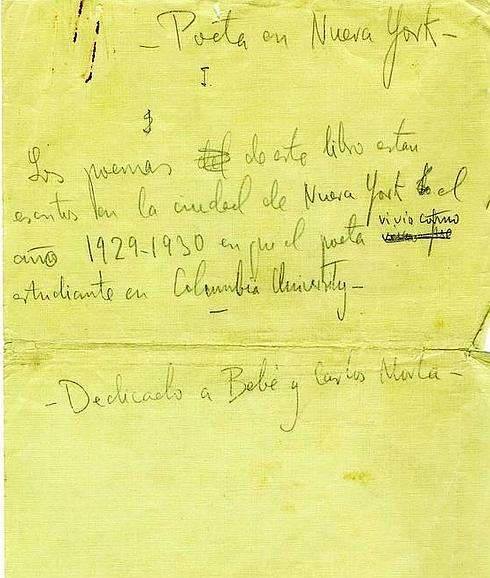 - Poeta en Nueva York -
I.
Los poemas de este libro estan
escritos en la ciudad de Nueva York el
año 1929-1930 en que el poeta vivió como
estudiante en Columbia University -
- Dedicado a Bebé y Carlos Morla -